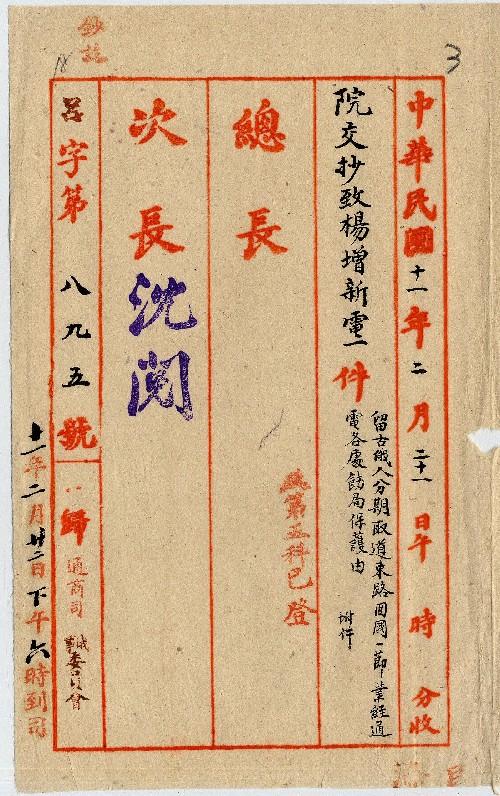 3
中華民國十一年二月二十一日午 時 分收
院交抄致楊增新電一件
留古俄人分期取道東路回國一節業經通
電各處飭局保護由 附件
總長
第五科已登
次長
沈閱
呂字第八九五號
歸
通商司
委員會
十一年二月廿二日下午六時到司
鈔訖